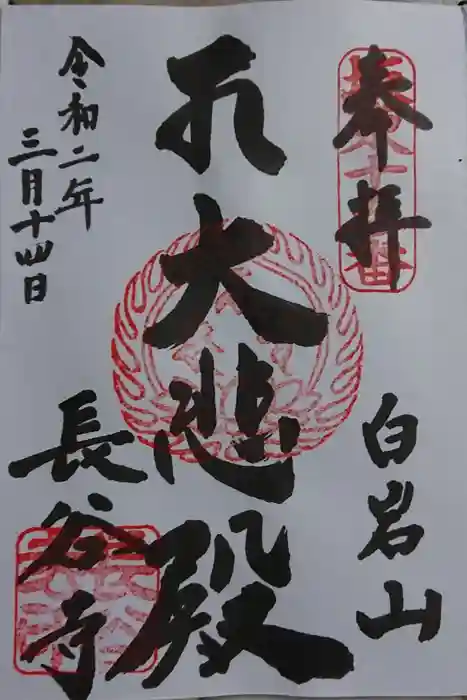 奉拝
白岩山
大悲殿
長谷寺
令和二年
三月十四日